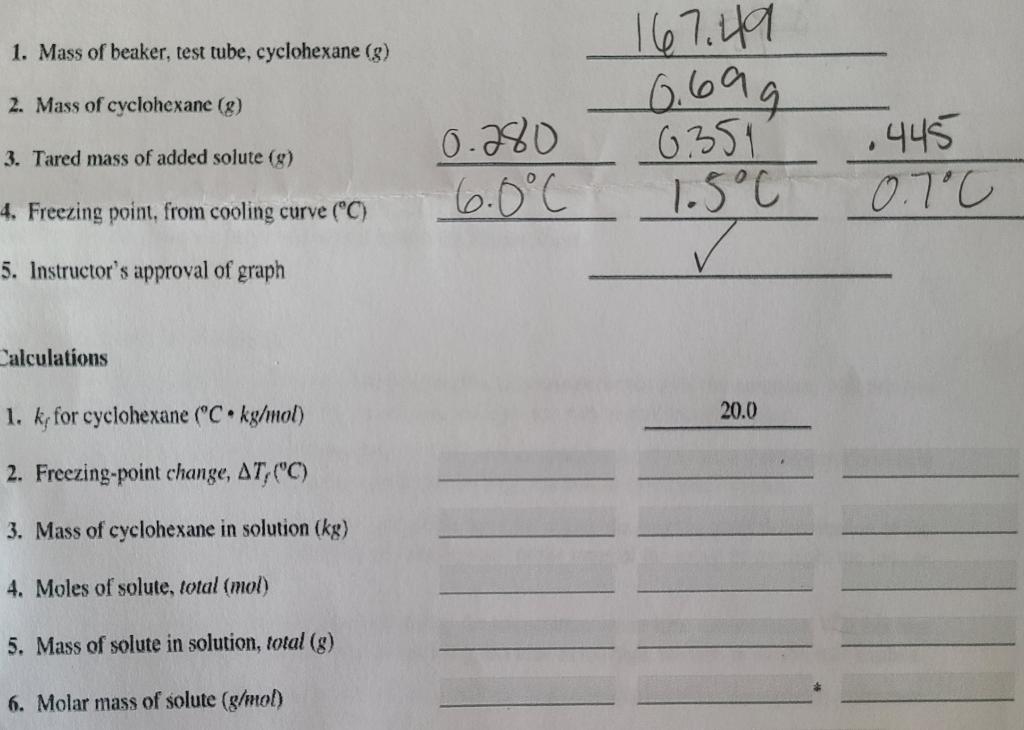 167.49
1. Mass of beaker, test tube, cyclohexane (g)
0.69g
2. Mass of cyclohexane (g)
0.280 0.351 .445
3. Tared mass of added solute (g)
6.0°C 1.5°C 0.7°C
4. Freezing point, from cooling curve (°C)
✓
5. Instructor's approval of graph
Calculations
1. kf for cyclohexane (°C • kg/mol) 20.0
2. Freezing-point change, ΔTf (°C)
3. Mass of cyclohexane in solution (kg)
4. Moles of solute, total (mol)
5. Mass of solute in solution, total (g)
6. Molar mass of solute (g/mol) *